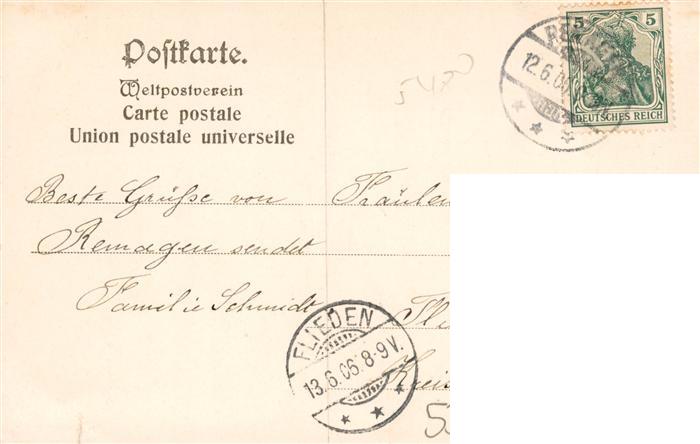 Postkarte.
Weltpostverein
Carte postale
Union postale universelle
5400
5 5
DEUTSCHES REICH
12.6.06
Beste Grüße von
Remagen sendet
Familie Schmidt
Fräulein
Fl
Kreis
FLIEDEN
13.6.06.8-9V.